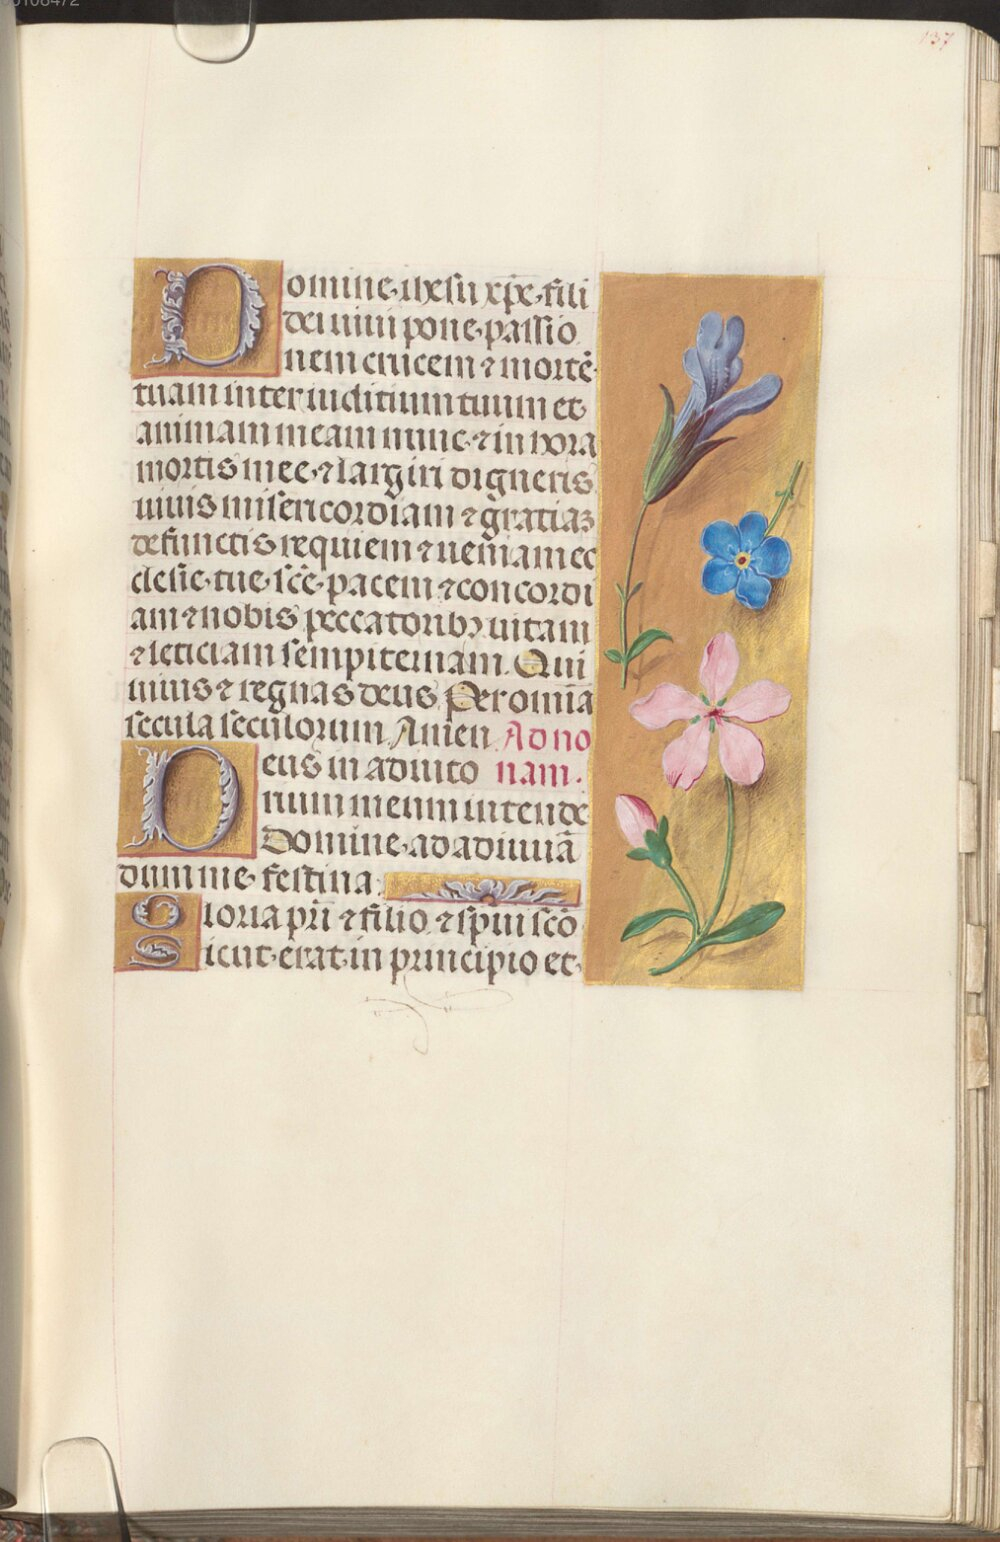 00108472
137
Domine ihesu xp̄e fili
dei uiui pone passio
nem crucem ⁊ mortē
tuam inter iuditium tuum et
animam meam nunc ⁊ in hora
mortis mee ⁊ largiri digneris
uiuis misericordiam ⁊ gratiaz
defunctis requiem ⁊ ueniam ec
clesie tue scē pacem ⁊ concordi
am ⁊ nobis peccatoribꝫ uitam
⁊ leticiam sempiternam. Qui
uiuis ⁊ regnas deus Per omīa
secula seculorum Amen Ad no
Deus in adiuto nam.
rium meum intende
Domine ad adiuuā
dum me festina.
Gloria pr̄i ⁊ filio ⁊ sp̄ui scō
Sicut erat in principio et